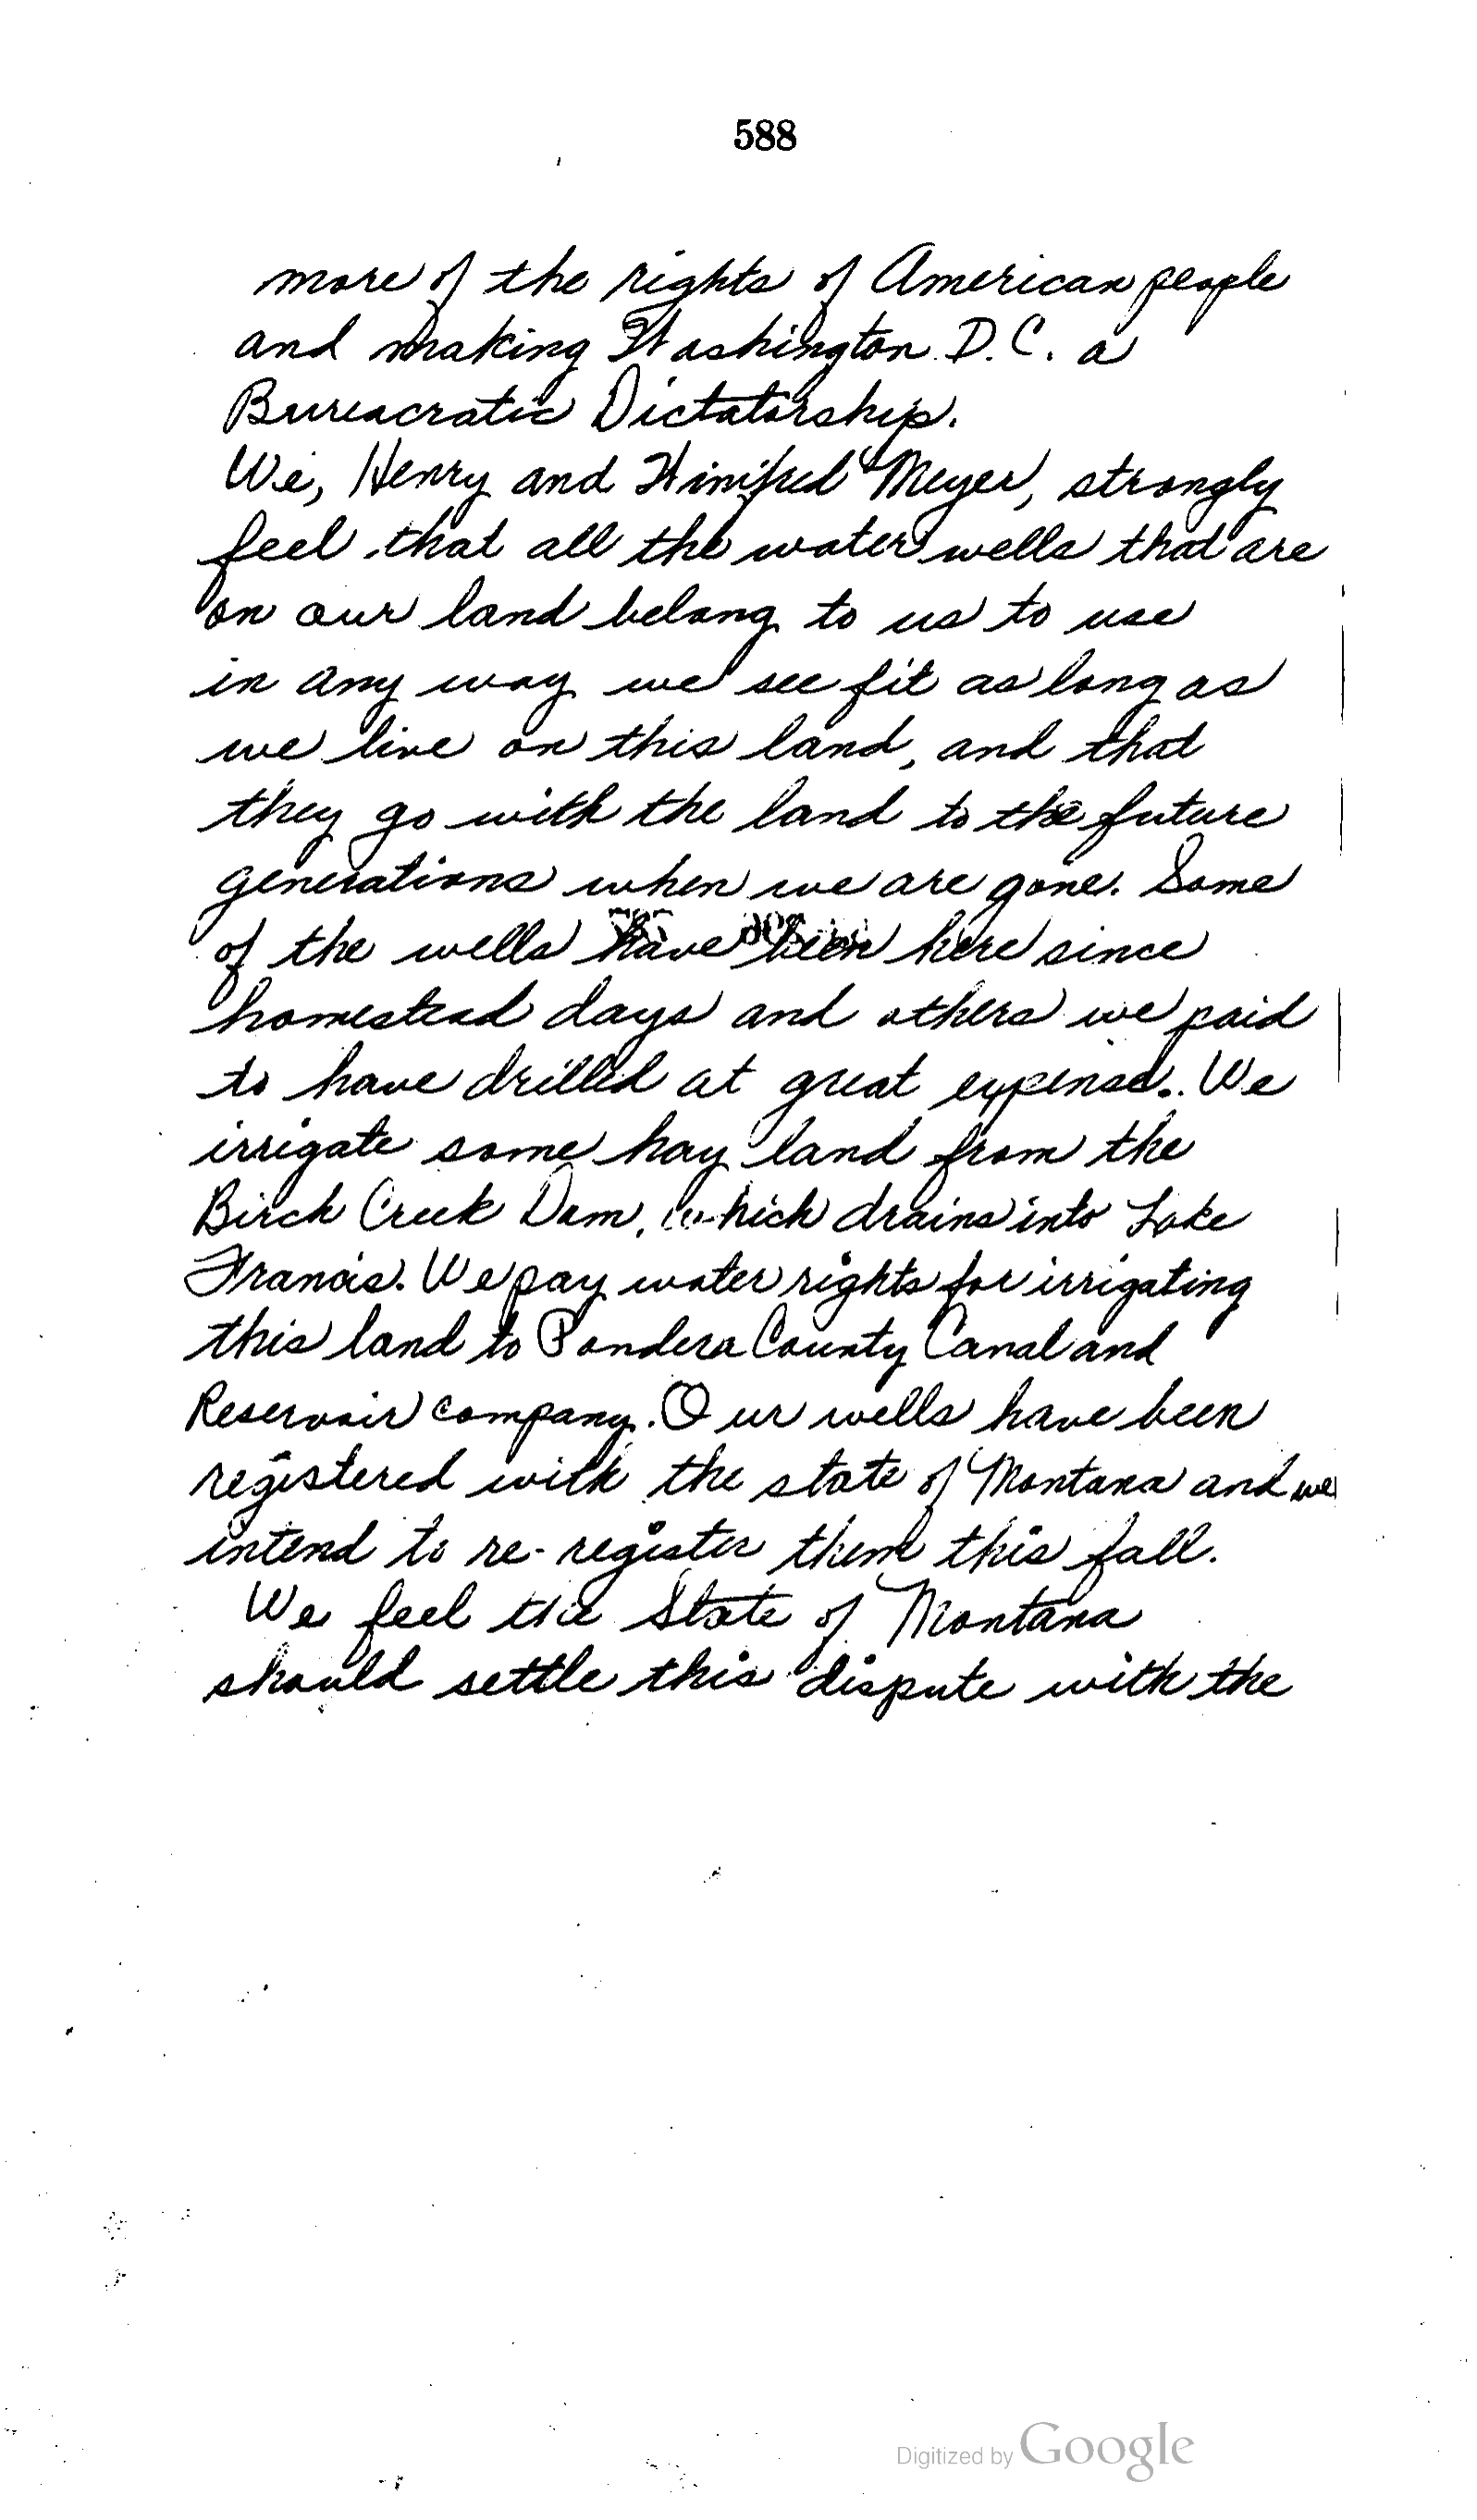 588
more of the rights of American people
and making Washington D.C. a
Bureacratic Dictatorship.
We, Henry and Winifred Meyer, strongly
feel that all the water wells that are
on our land belong to us to use
in any way we see fit as long as
we live on this land, and that
they go with the land to the future
generations when we are gone. Some
of the wells have been here since
homestead days and others we paid
to have drilled at great expense. We
irrigate some hay land from the
Birch Creek Dam, which drains into Lake
Francis. We pay water rights for irrigating
this land to Pondera County Canal and
Reservoir company. Our wells have been
registered with the state of Montana and we
intend to re-register them this fall.
We feel the State of Montana
should settle this dispute with the
Digitized by Google